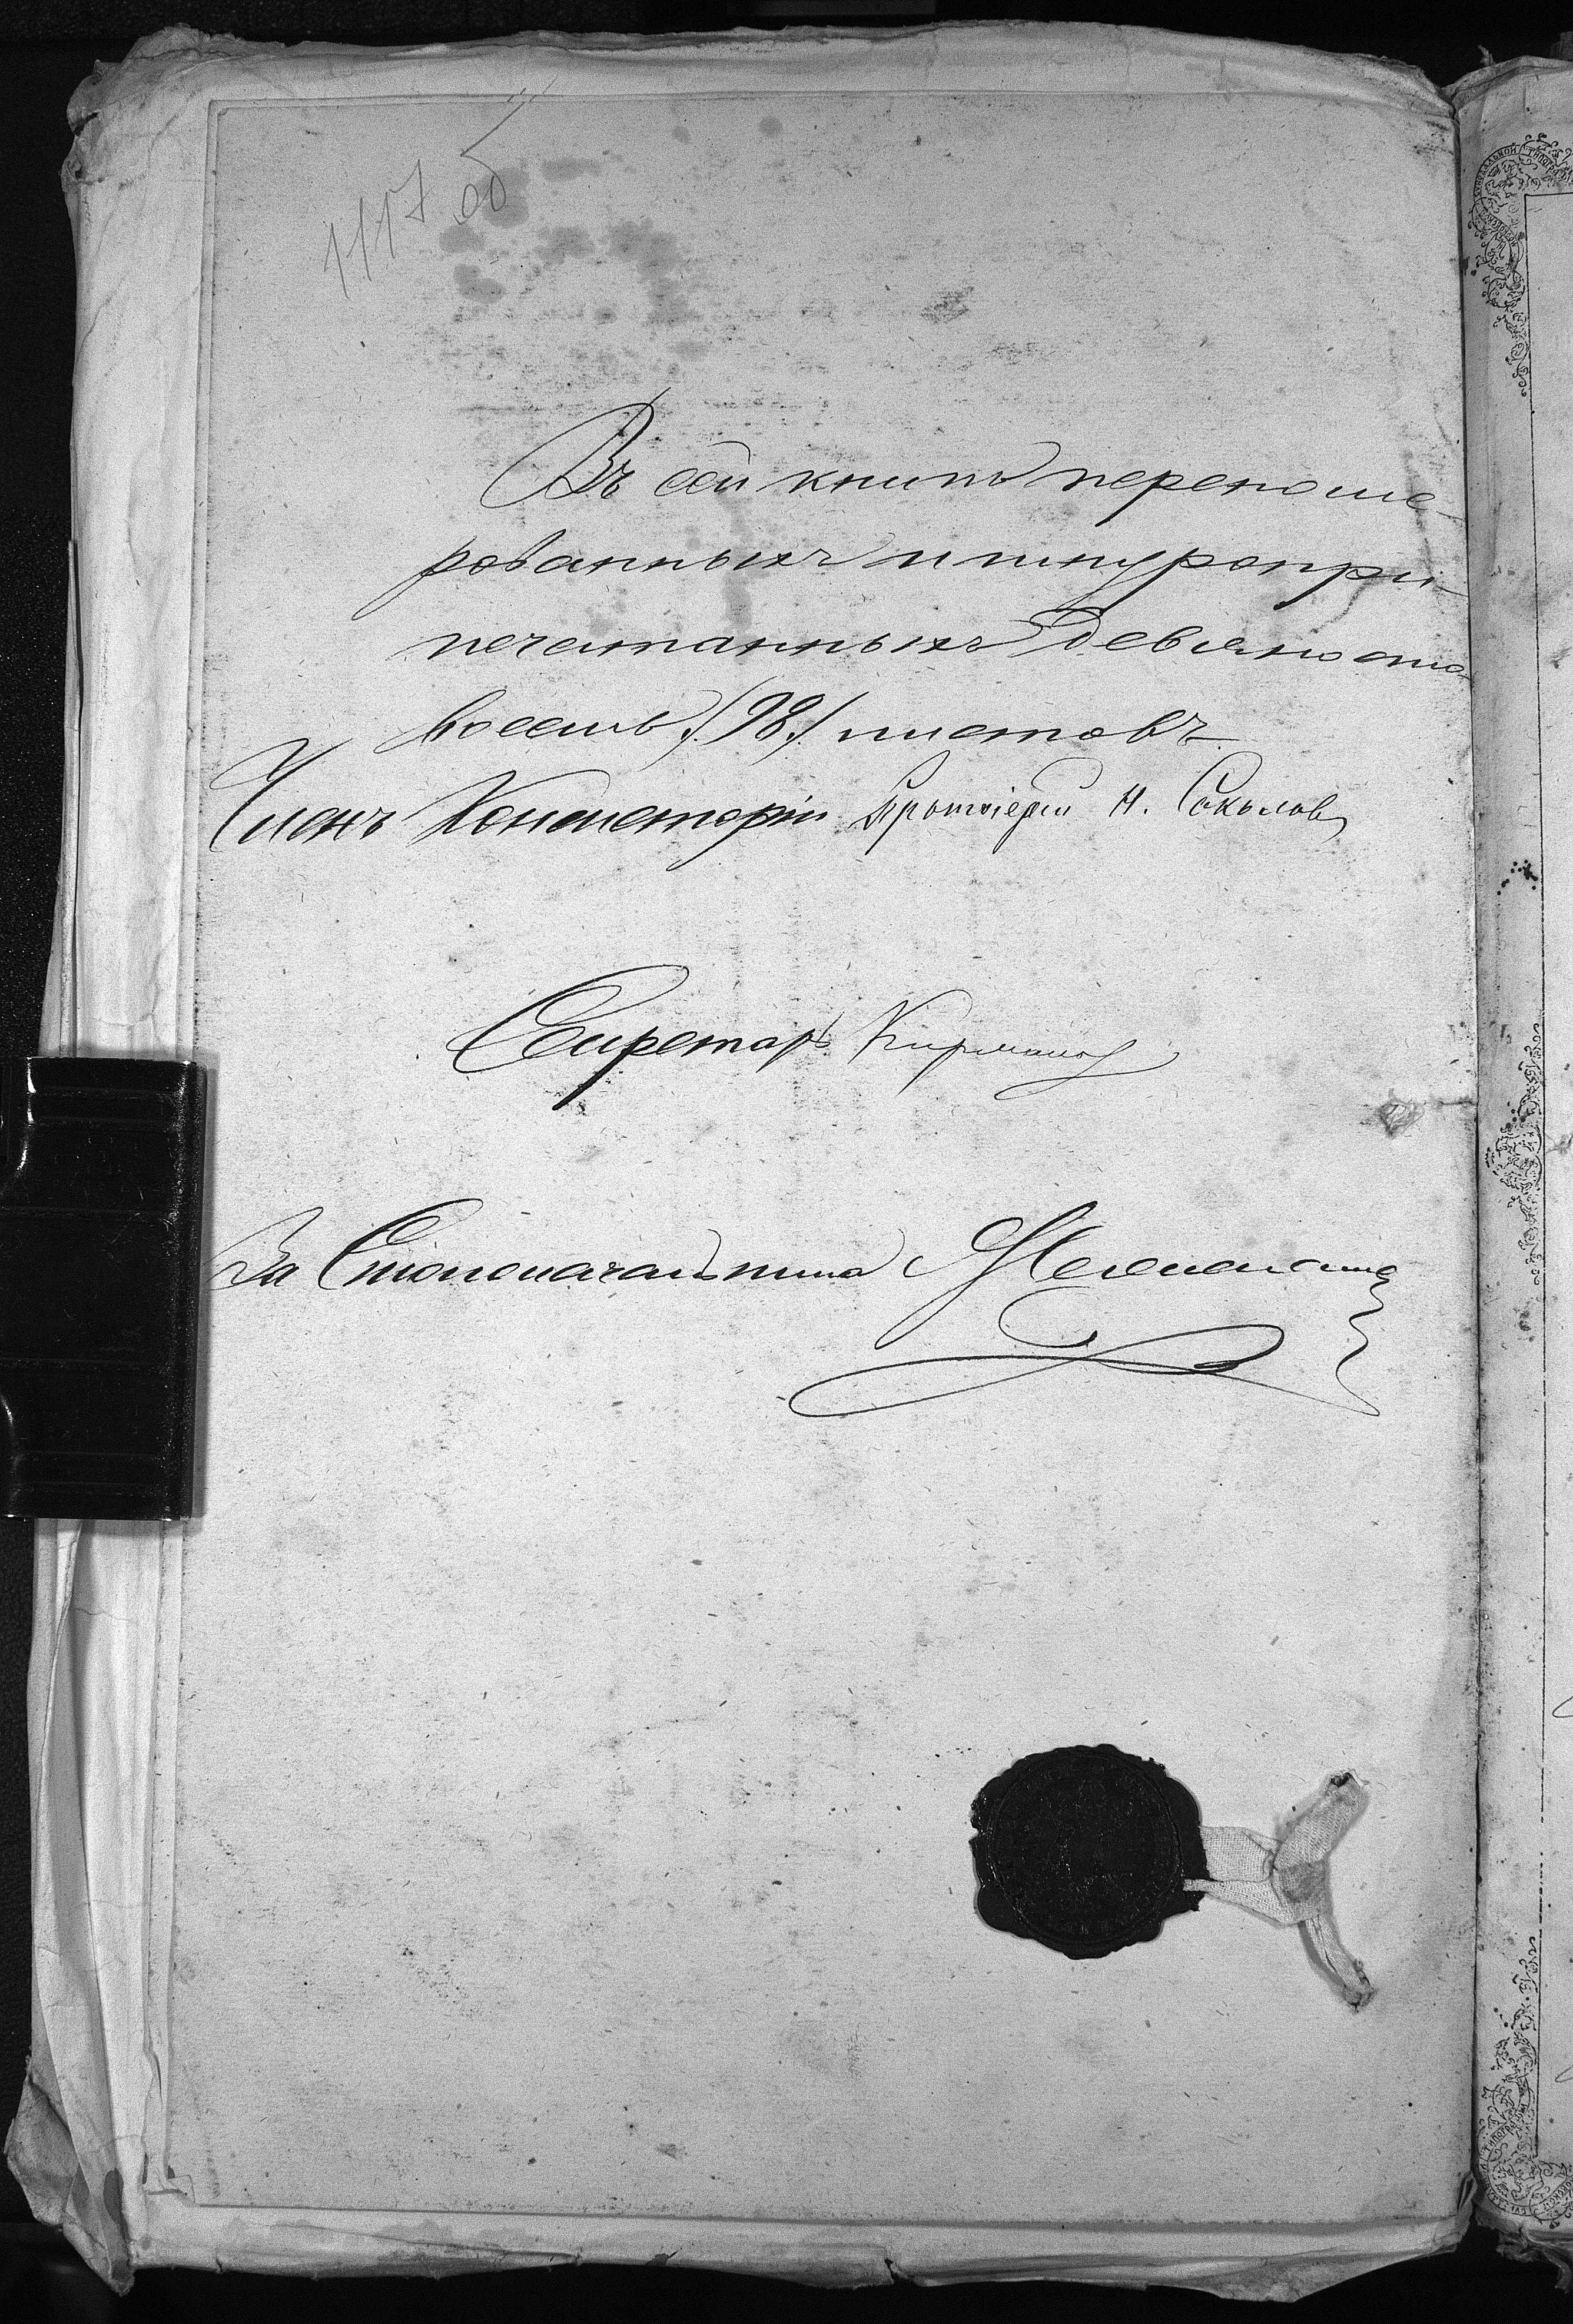 1117 об
Въ сей книгѣ перенуме-
рованныхъ и шнуропри-
печатанныхъ девяносто
восемь /98/ листовъ
Членъ Консисторіи Протоіерей Н. Соколовъ
Секретарь
За Столоначальника